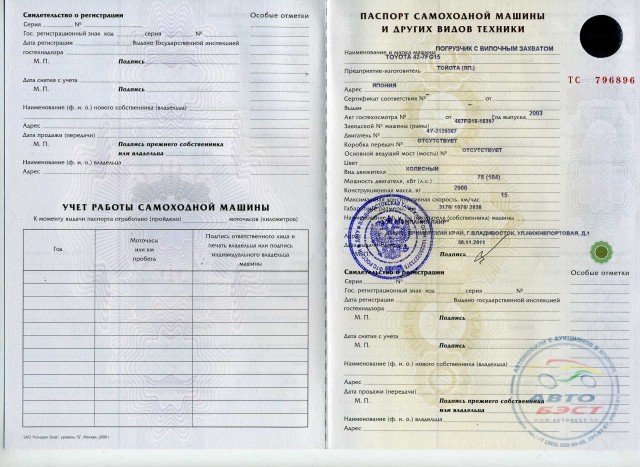 Свидетельство о регистрации
Особые отметки
Серия №
Гос. регистрационный знак код серия №
Дата регистрации Выдано Государственной инспекцией
гостехнадзора
М. П. Подпись
Дата снятия с учета
М. П. Подпись
Наименование (ф. и о.) нового собственника (владельца)
Адрес
Дата продажи (передачи)
М. П. Подпись прежнего собственника
или владельца
Наименование (ф. и о.) владельца
Адрес
УЧЕТ РАБОТЫ САМОХОДНОЙ МАШИНЫ
К моменту выдачи паспорта отработано (пройдено) моточасов (километров)
Год
Моточасы
или км
пробега
Подпись ответственного лица и
печать владельца или подпись
индивидуального владельца
машины
ПАСПОРТ САМОХОДНОЙ МАШИНЫ
И ДРУГИХ ВИДОВ ТЕХНИКИ
Наименование и марка машины ПОГРУЗЧИК С ВИЛОЧНЫМ ЗАХВАТОМ
TOYOTA 42-7FG15
Предприятие-изготовитель ТОЙОТА (ЯП.)
ТС 796896
Адрес ЯПОНИЯ
Сертификат соответствия № от
Выдан
Акт гостехосмотра № от Год выпуска 2003
Заводской № машины (рамы)
Двигатель №
Коробка передач № ОТСУТСТВУЕТ
Основной ведущий мост (мосты) № ОТСУТСТВУЕТ
Цвет
Вид движителя КОЛЕСНЫЙ
Мощность двигателя, кВт (л.с.)
Конструкционная масса, кг
Максимальная конструктивная скорость, км/час 15
КРАЙ, Г.ВЛАДИВОСТОК, УЛ.НИЖНЕПОРТОВАЯ, Д.1
30.11.2011
М. П. Подпись
Свидетельство о регистрации
Особые отметки
Серия №
Гос. регистрационный знак код серия №
Дата регистрации Выдано государственной инспекцией
гостехнадзора
М. П. Подпись
Дата снятия с учета
М. П. Подпись
Наименование (ф. и о.) нового собственника (владельца)
Адрес
Дата продажи (передачи)
М. П. Подпись прежнего собственника
или владельца
Наименование (ф. и о.) владельца
Адрес
АВТО
БЭСТ